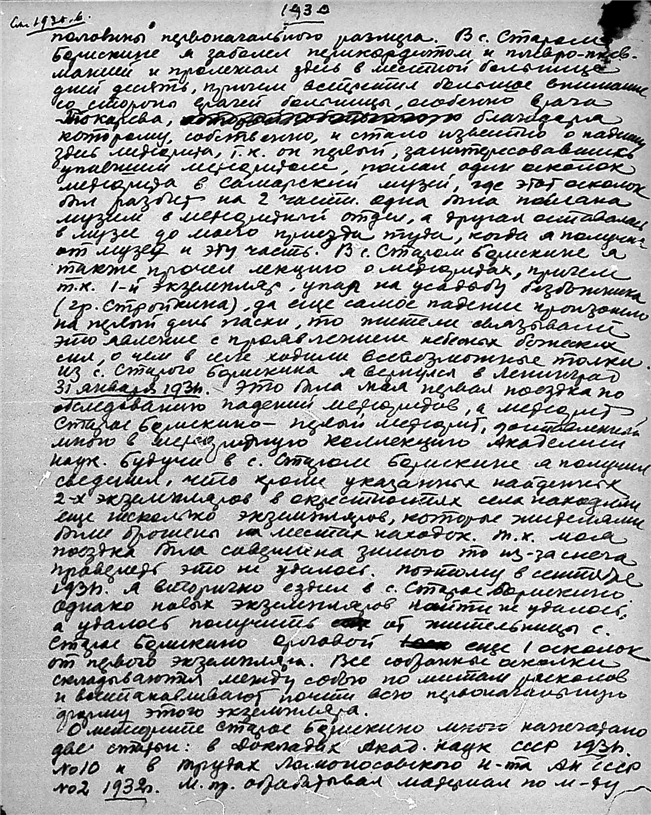 См. 1930, в. 1930
половины первоначального размера. В с. Старом
Борискине я заболел перикардитом и плевро-пнев-
монией и пролежал здесь в местной больнице
дней десять, причем встретил большое внимание
со стороны врачей больницы, особенно врача
Токарева, благодаря
которому, собственно, и стало известно о падении
здесь метеорита, т.к. он первый, заинтересовавшись
упавшим метеоритом, послал один осколок
метеорита в Самарский музей, где этот осколок
был разбит на 2 части. одна была послана
музеем в метеоритный отдел, а другая оставалась
в музее до моего приезда туда, когда я получил
от музея и эту часть. В с. Старом Борискине я
также прочел лекцию о метеоритах, причем
т.к. 1-й экземпляр, упал на усадьбу безбожника
(гр. Стройкина), да еще самое падение произошло
на первый день пасхи, то жители связывали
это явление с проявлением небесных божеских
сил, о чем в селе ходили всевозможные толки.
Из с. Старого Борискина я вернулся в Ленинград
31 января 1931г. Это была моя первая поездка по
обследованию падений метеоритов, а метеорит
Старое Борискино – первый метеорит, доставленный
мною в метеоритную коллекцию Академии
наук. Будучи в с. Старом Борискине я получил
сведения, что кроме указанных найденных
2-х экземпляров в окрестностях села находили
еще несколько экземпляров, которые жителями
были брошены на местах находок. т.к. моя
поездка была совершена зимою то из-за снега
проверить это не удалось. Поэтому в сентябре
1931г. я вторично ездил в с. Старое Борискино
Однако новых экземпляров найти не удалось,
а удалось получить от жительницы с.
Старое Борискино еще 1 осколок
от первого экземпляра. Все собранные осколки
складываются между собою по местам расколов
и восстанавливают почти всю первоначальную
форму этого экземпляра.
О метеорите Старое Борискино мною напечатано
две статьи: в Докладах Акад. наук СССР 1931г.
№10 и в трудах Ломоносовского и-та АН СССР
№2 1932г. М. пр. обрабатывал материал по м-ту